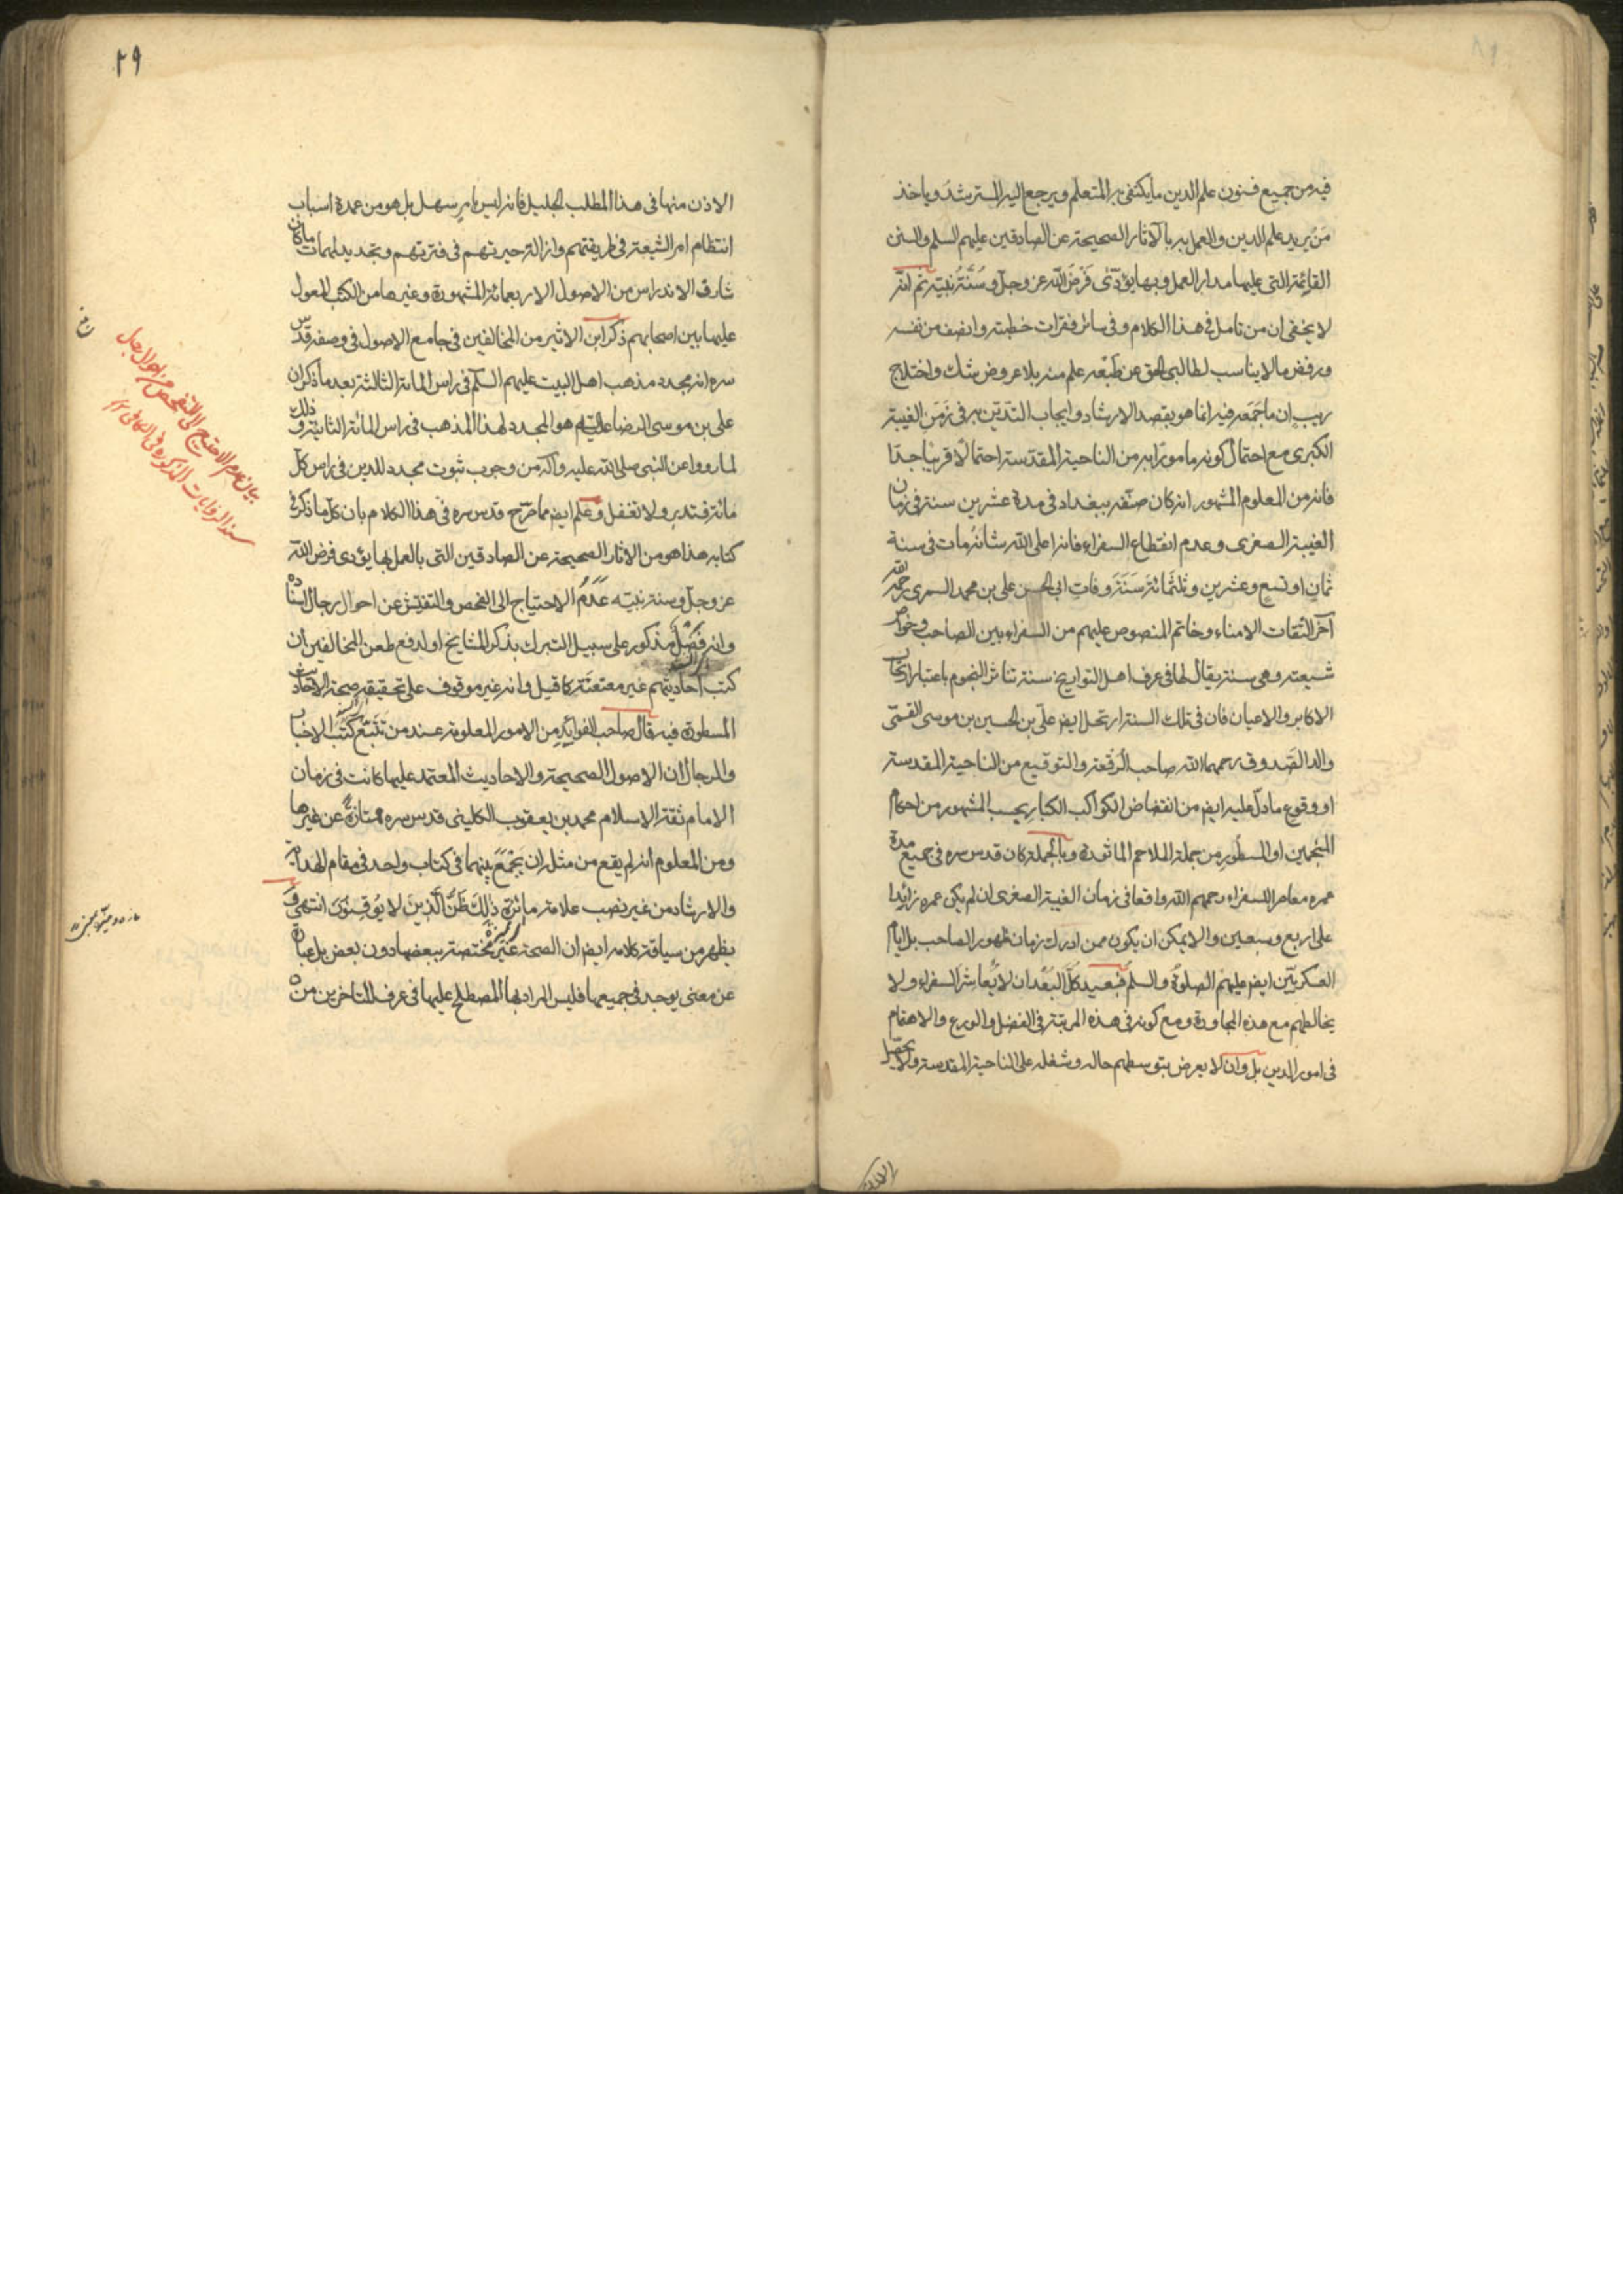 فيه من جميع فنون علم الدين ما يكتفى به المتعلم ويرجع اليه المسترشد وياخذ
مَن يريد علم الدين والعمل به بالآثار الصحيحة عن الصادقين عليهم السلم والسنن
القائمة التى عليها مدار العمل وبها يؤدّى فَرْضُ اللّه عز وجل وسُنّةُ نبيّه ثم انّه
لا يخفى ان من تامل فى هذا الكلام وفى سائر فقرات خطبته وانصف من نفسه
ورفض ما لا يناسب لطالبى الحق عن طبعه علم منه بلا عروض شك واختلاج
ريب ان ما جَمَعه فيه انما هو بقصد الارشاد وايجاب التديّن به فى زمن الغيبة
الكبرى مع احتمال كونه مامورًا به من الناحية المقدّسة احتمالًا قريبًا جدّا
فانه من المعلوم المشهور انه كان صنّفه ببغداد فى مدة عشرين سنة فى زمان
الغيبة الصغرى وعدم انقطاع السفراء فانه اعلى اللّه شانه مات فى سنة
ثمان او تسع وعشرين وثلثمائة سَنَةَ وفات ابى الحسن على بن محمد السمرى رحمه اللّه
آخر الثقات الامناء وخاتم المنصوص عليهم من السفراء بين الصاحب وخواص
شيعته وهى سنة يقال لها فى عرف اهل التواريخ سنة تناثر النجوم باعتبار ارتحال
الاكابر والاعيان فان فى تلك السنة ارتحل ايض علىّ بن الحسين بن موسى القمّى
والد الصّدوق رحمهما اللّه صاحب الرقعة والتوقيع من الناحية المقدسة
او وقوع ما دلّ عليه ايض من انقضاض الكواكب الكبار بحسب المشهور من احكام
المنجمين او المسطور من جملة الملاحم الماثورة وبالجملة كان قدس سره فى جميع مدة
عمره معاصر السفراء رحمهم اللّه واقعا فى زمان الغيبة الصغرى ان لم يكن عمره زائدا
على اربع وسبعين والا يمكن ان يكون ممن ادرك زمان ظهور الصاحب بل ايام
العسكريّين ايض عليهم الصلوة والسلم فبعيد كلّ البُعْد ان لا يُعاشر السفراء ولا
يخالطهم مع هذه المجاورة ومع كونه فى هذه المرتبة فى الفضل والورع والاهتمام
فى امور الدين بل وان لا يعرض بتوسطهم حاله وشغله على الناحية المقدسة ولا يحصّل
الاذن
٢٩
الاذن منها فى هذا المطلب الجليل فانه ليس بامر سهل بل هو من عمدة اسباب
انتظام امر الشيعة فى طريقتهم وازالة حيرتهم فى فترتهم وتجديد لمهمات ما كان
شارف الاندراس من الاصول الاربعمائة المشهورة وغيرها من الكتب المعول
عليها بين اصحابهم ذكر ابن الاثير من المخالفين فى جامع الاصول فى وصفه قدّس
سره انه مجدد مذهب اهل البيت عليهم السلم فى راس المائة الثالثة بعد ما ذكر ان
على بن موسى الرضا عليه السلام هو المجدد لهذا المذهب فى راس المائة الثانية وذلك
لما رووا عن النبى صلى اللّه عليه وآله من وجوب ثبوت مجدد للدين فى راس كلّ
مائة فتدبر ولا تغفل وعُلم ايض مما صرّح قدس سره فى هذا الكلام بان كلّ ما ذكر فى
كتابه هذا هو من الآثار الصحيحة عن الصادقين التى بالعمل بها يؤدى فرض اللّه
عز وجل وسنة نبيّه عَدَمُ الاحتياج الى الفحص والتفتيش عن احوال رجال اسناده
وانه فضل مذكور على سبيل التبرك بذكر المشايخ او لدفع طعن المخالفين ان
كتب احاديثهم غير معنعنة كما قيل وانه غير موقوف على تحقيقه صحة الاحاديث
المسطورة فيه قال صاحب الفوائد من الامور المعلومة عند من تتبّع كتب الاخبار
والرجال ان الاصول الصحيحة والاحاديث المعتمد عليها كانت فى زمان
الامام ثقة الاسلام محمد بن يعقوب الكلينى قدس سره ممتازة عن غيرها
ومن المعلوم انه لم يقع من مثله ان يَجْمَعَ بينهما فى كتاب واحد فى مقام الهداية
والارشاد من غير نصب علامة مائزة ذٰلِكَ ظَنُّ الَّذينَ لا يُوقِنُونَ انتهى و
يظهر من سياقة كلامه ايض ان الصحة غير مختصة ببعضها دون بعض بل عبارة
عن معنى يوجد فى جميعها فليس المراد بها المصطلح عليها فى عرف المتاخرين من
بيان عدم الاحتياج الى التفحص عن احوال رجال
سند الروايات المذكورة فى الكافى